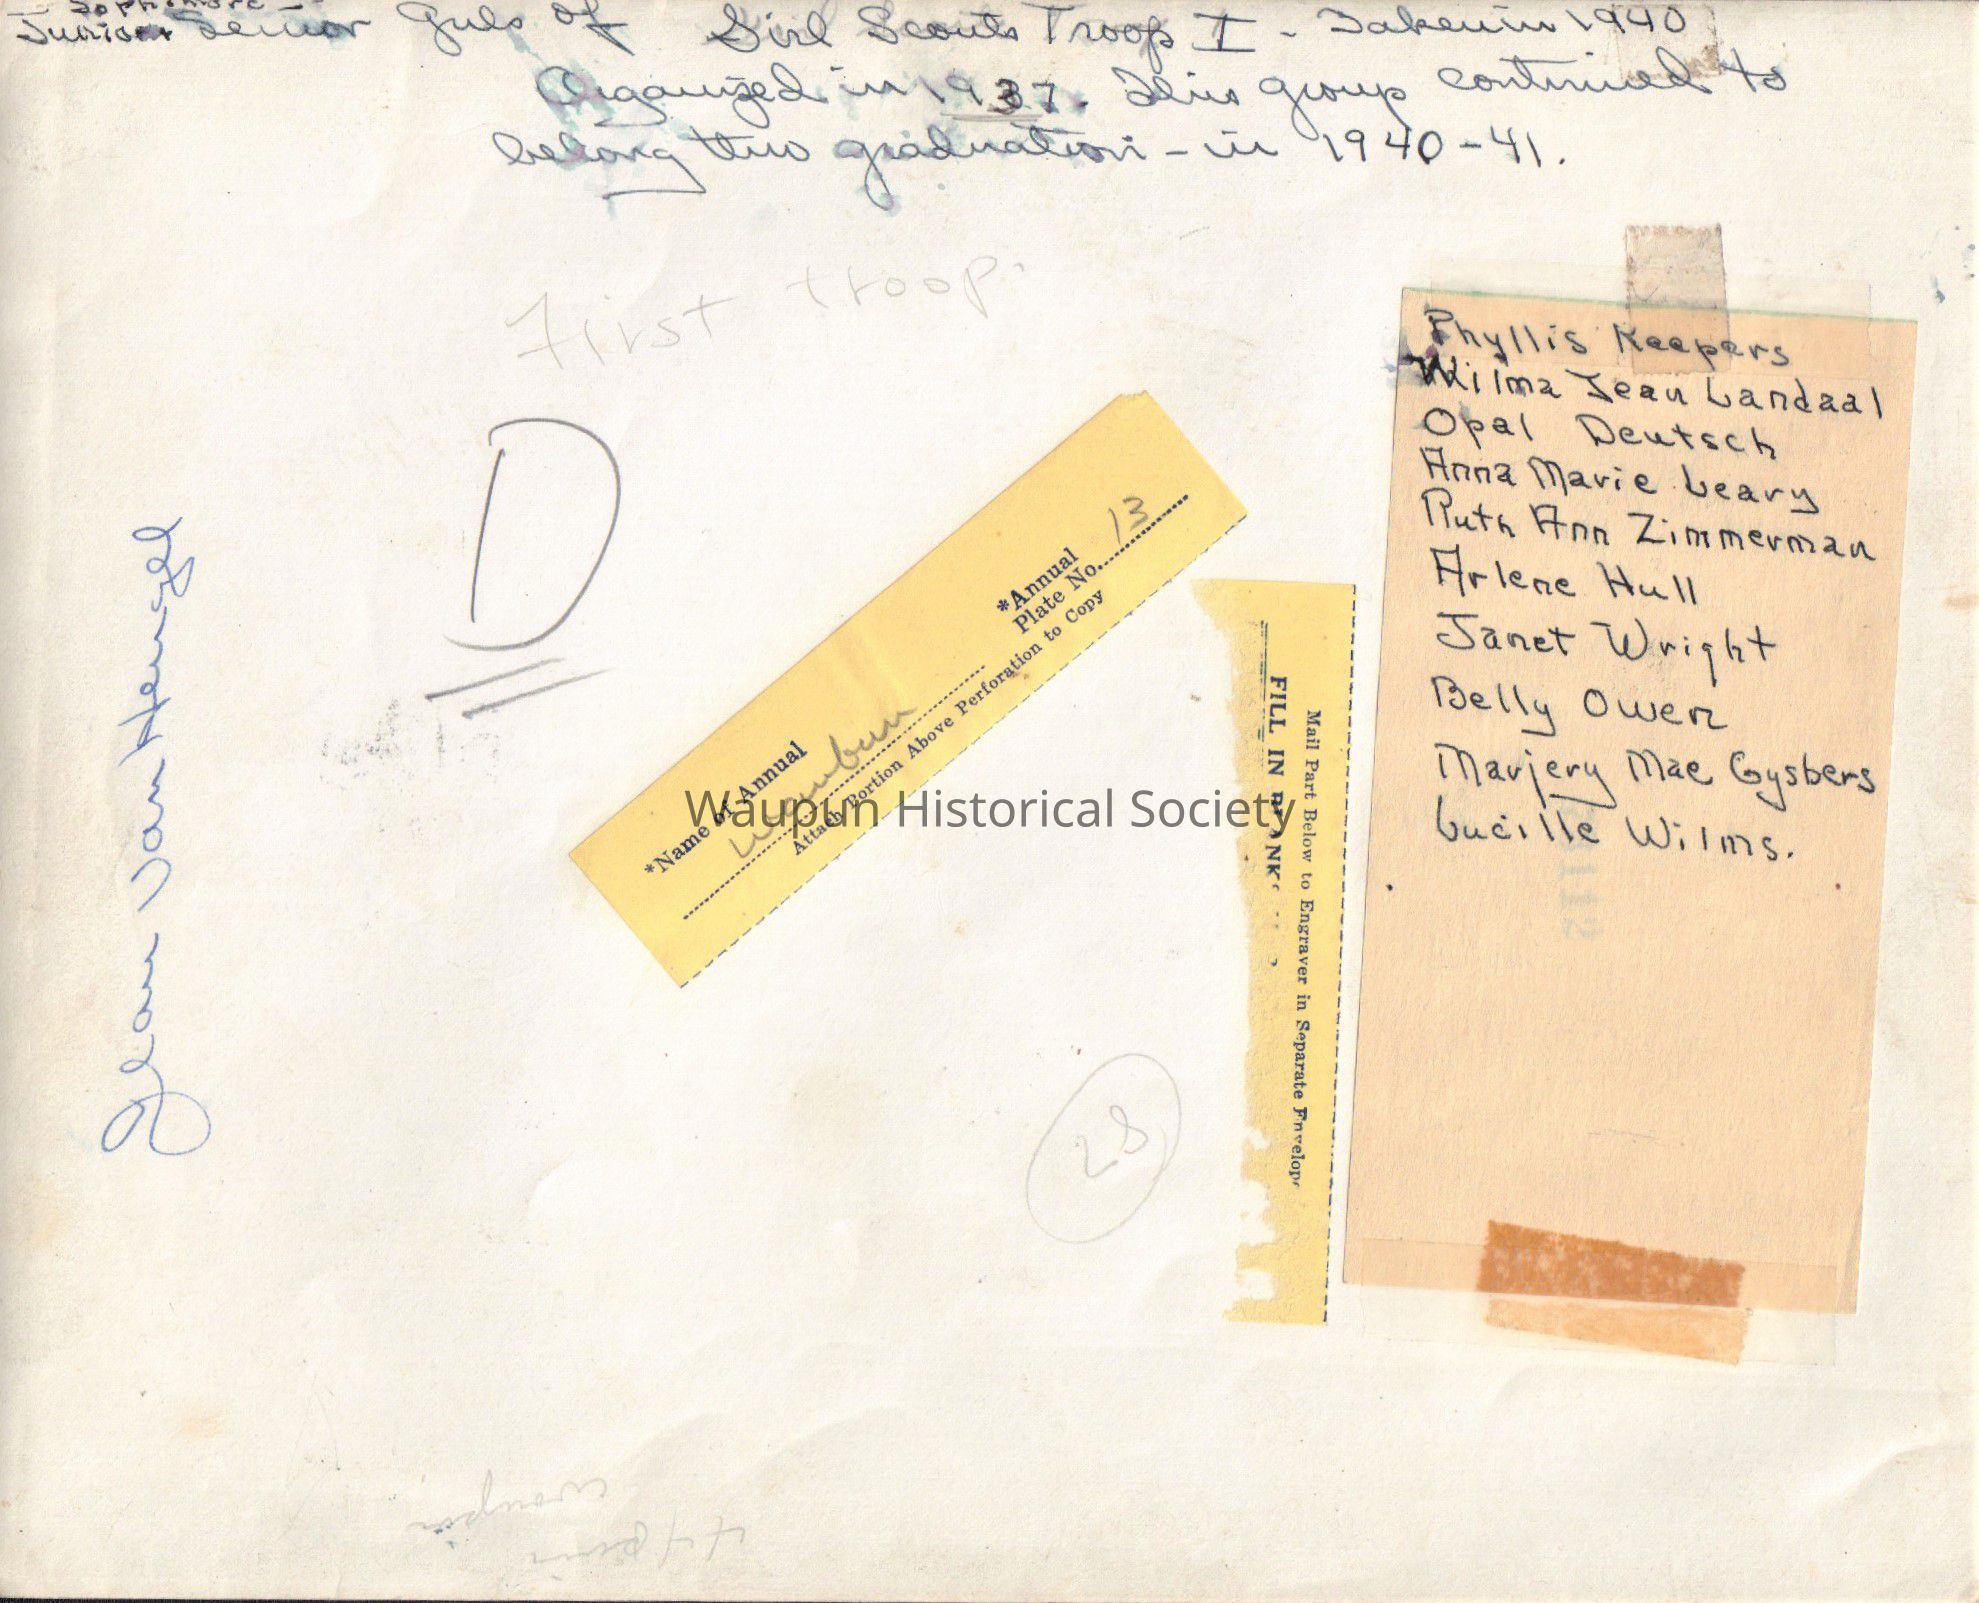 Sophomore -
Junior Senior Girls of Girl Scouts Troop I - Taken in 1940
Organized in 1937. This group continued to
belong thru graduation - in 1940-41.
First troop.
D
Phyllis Keepers
Wilma Jean Landaal
Opal Deutsch
Anna Marie Leary
Ruth Ann Zimmerman
Arlene Hull
Janet Wright
Belly Owen
Marjery Mae Gysbers
Lucille Wilms.
*Annual
Plate No. 13
*Name of Annual
Waubun
Attach Portion Above Perforation to Copy
Mail Part Below to Engraver in Separate Envelope
FILL IN BLANK
Waupun Historical Society
Jean Van Hengel
28
waupun